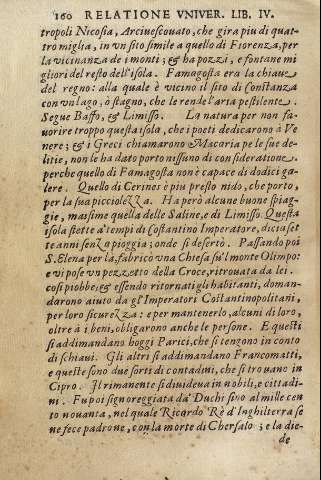 160 RELATIONE VNIVER. LIB. IV.
tropoli Nicosia, Arciuescouato, che gira piu di quat-
tro miglia, in vn sito simile a quello di Fiorenza, per
la vicinanza de i monti; & ha pozzi, e fontane mi
gliori del resto dell'isola. Famagosta era la chiaue
del regno: alla quale è vicino il sito di Costanza
con vn lago, ò stagno, che le rende l'aria pestilente.
Segue Baffo, & Limisso. La natura per non fa-
uorire troppo questa isola, che i poeti dedicarono à Ve
nere; & i Greci chiamarono Macaria pe le sue de-
litie, non le ha dato porto nissuno di consideratione
perche quello di Famagosta non è capace di dodici ga-
lere. Quello di Cerines è piu presto nido, che porto,
per la sua picciolezza. Ha però alcune buone spiag-
gie, massime quella delle Saline, e di Limisso. Questa
isola stette a' tempi di Costantino Imperatore, diciaset
te anni senza pioggia; onde si desertò. Passando poi
S. Elena per là, fabricò vna Chiesa su'l monte Olimpo:
e vi pose vn pezzetto della Croce, ritrouata da lei.
cosi piobbe, & essendo ritornati gli habitanti, doman-
darono aiuto da gl'Imperatori Costantinopolitani,
per loro sicurezza: e per mantenerlo, alcuni di loro,
oltre à i beni, obligarono anche le persone. E questi
si addimandano hoggi Parici, che si tengono in conto
di schiaui. Gli altri si addimandano Francomatti,
e queste sono due sorti di contadini, che si trouano in
Cipro. Il rimanente si diuideua in nobili, e cittadi
ni. Fu poi signoreggiata da' Duchi sino al mille cen
to nouanta, nel quale Ricardo Rè d'Inghilterra se
ne fece padrone, con la morte di Chersalo; e la die-
de